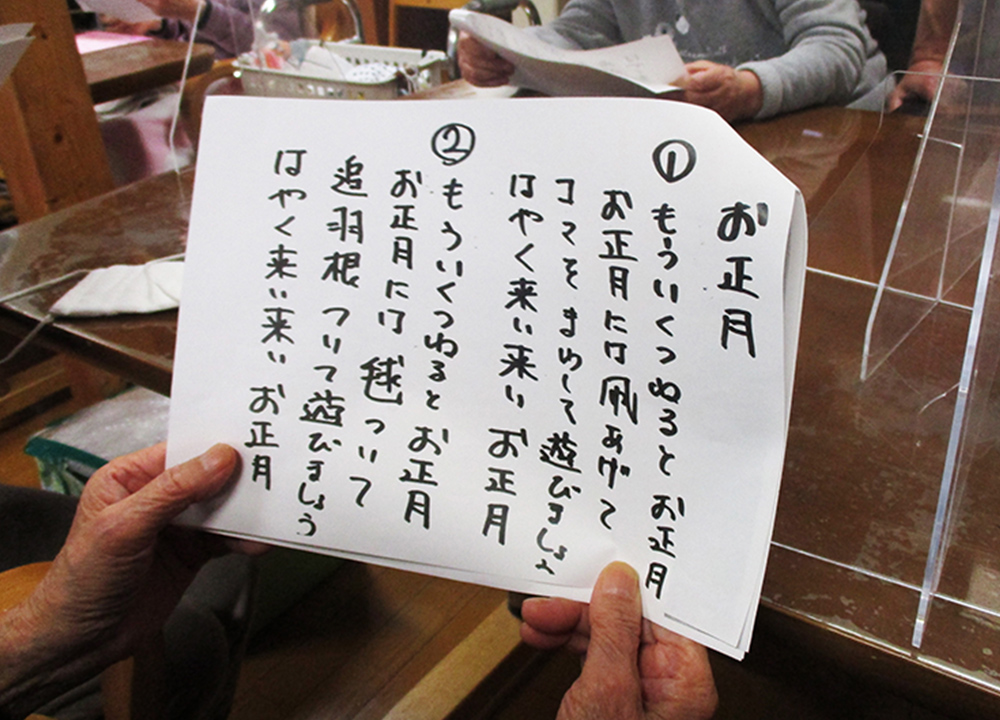 お正月
①
もういくつねると お正月
お正月には凧あげて
コマをまわして遊びましょう
はやく来い来い お正月
②
もういくつねると お正月
お正月には 毬ついて
追羽根 ついて遊びましょう
はやく来い来い お正月